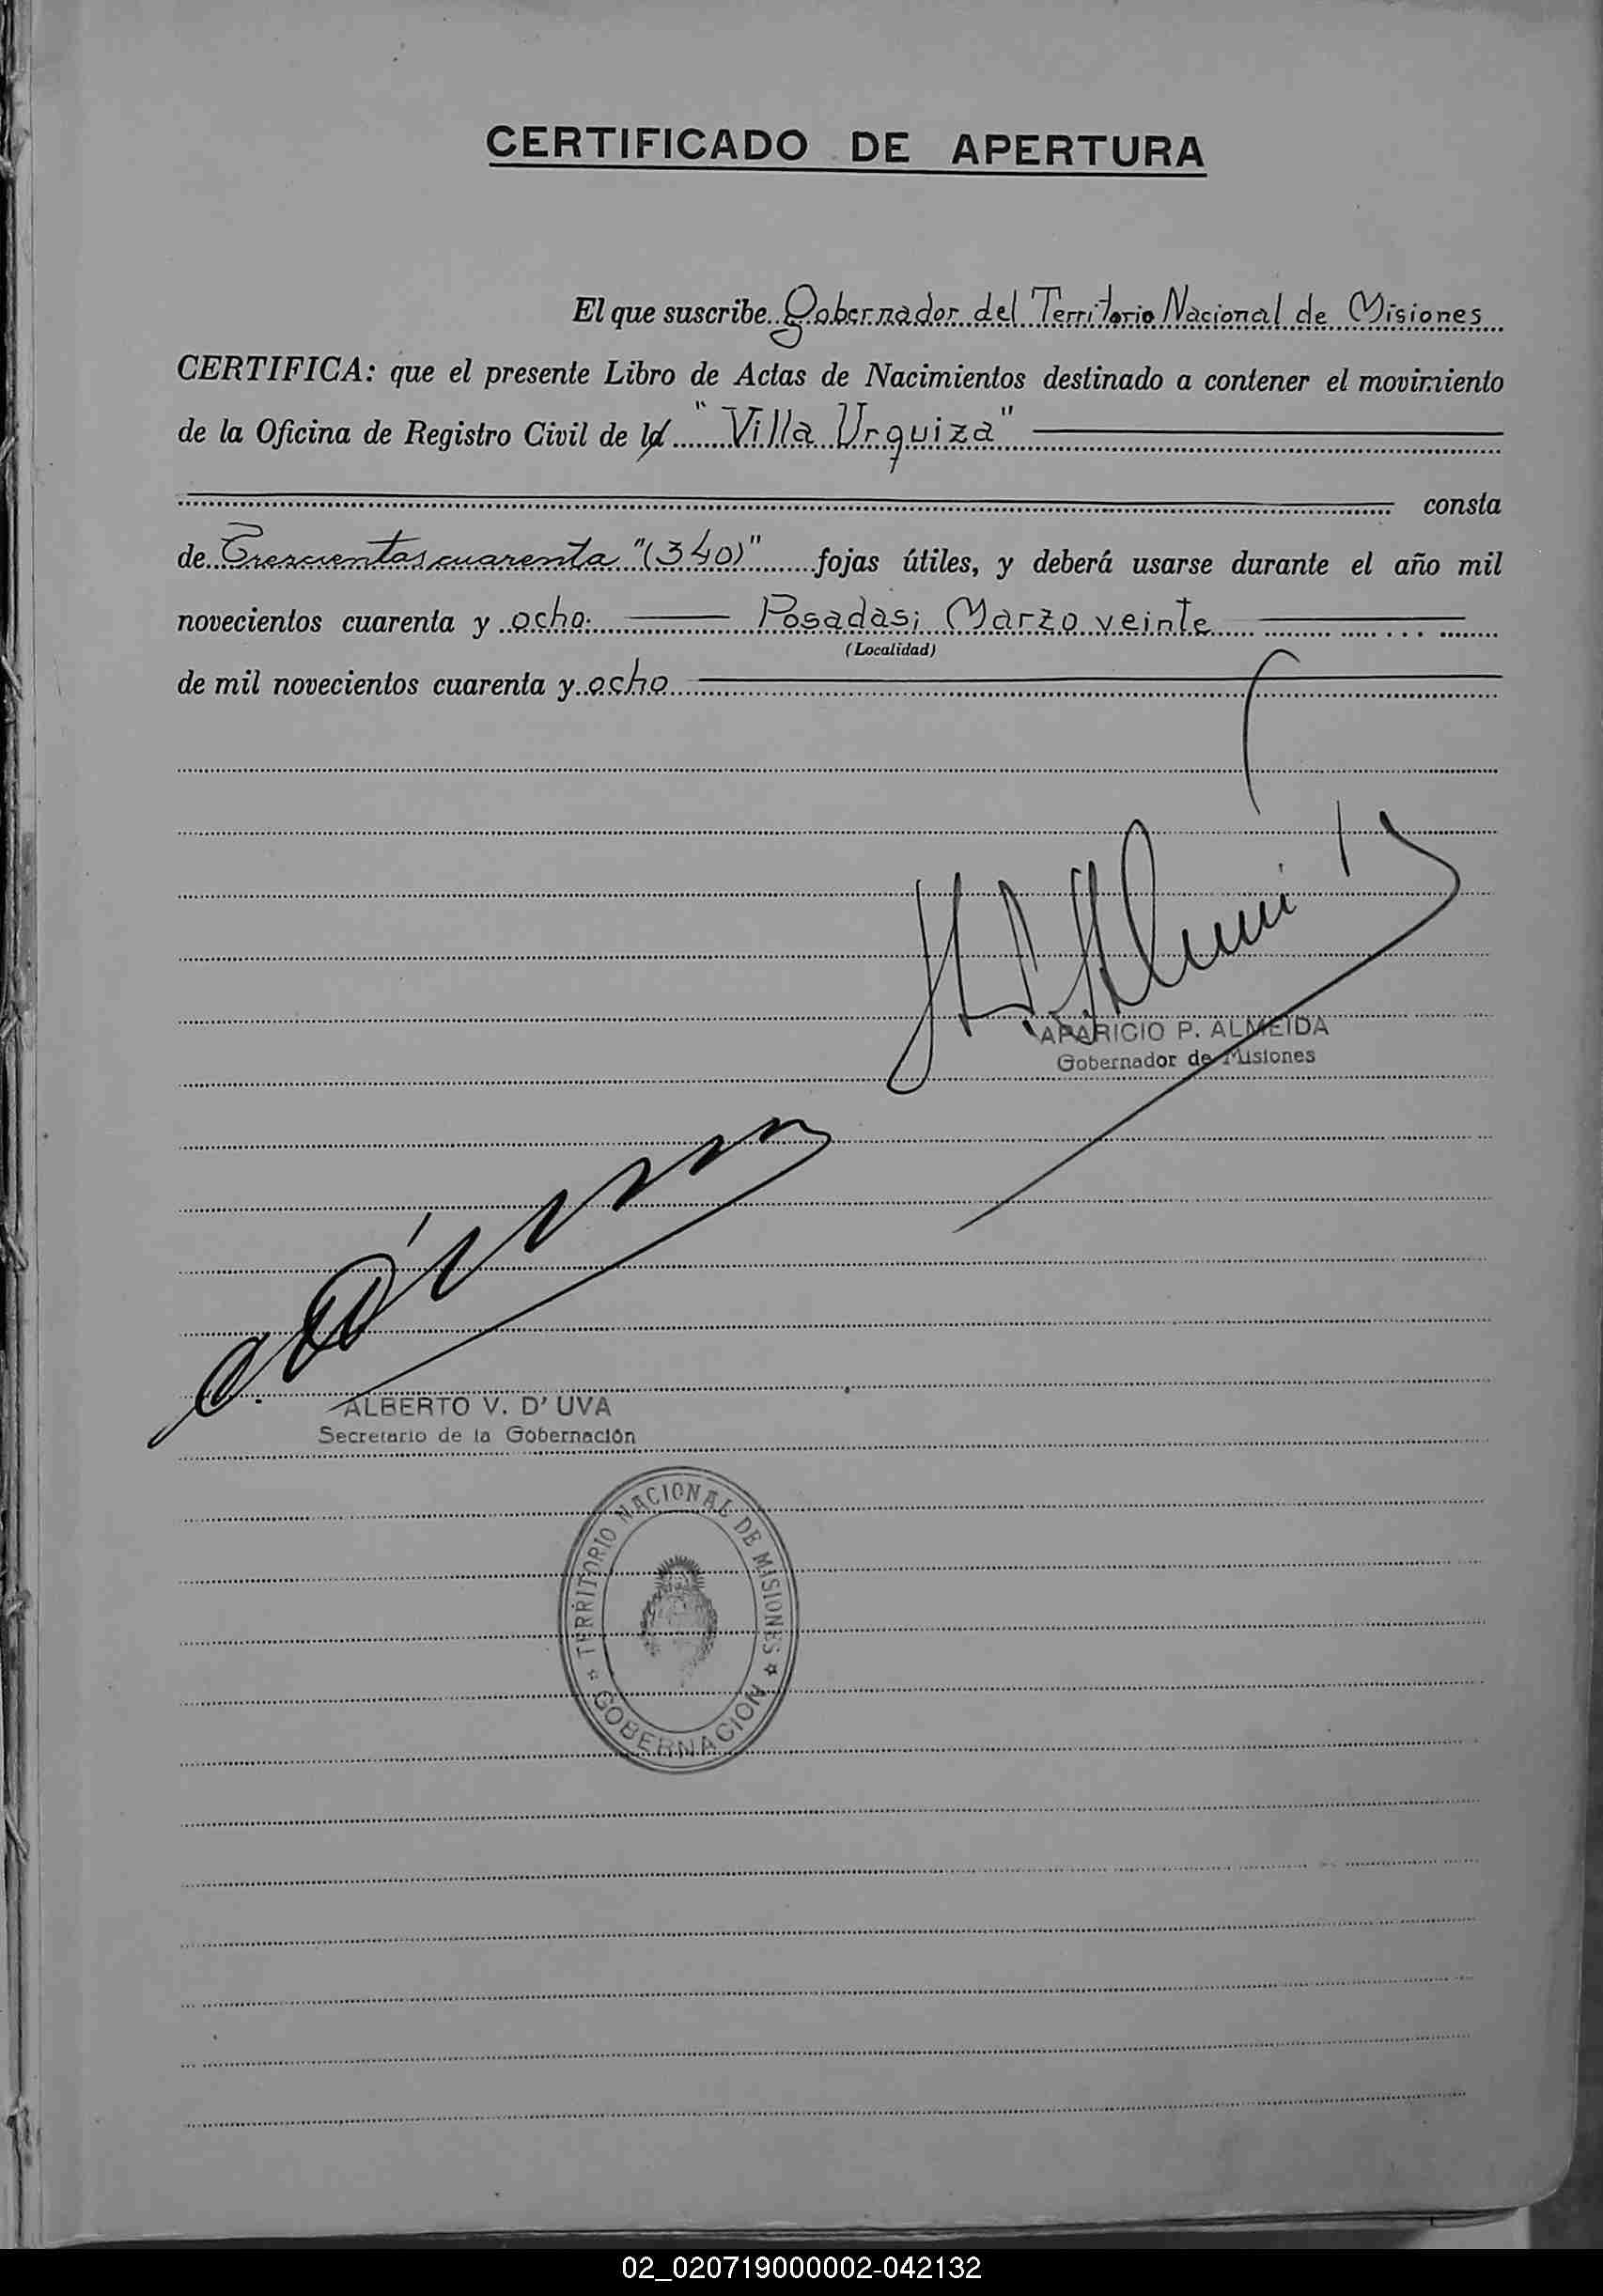 CERTIFICADO DE APERTURA
El que suscribe Gobernador del Territorio Nacional de Misiones
CERTIFICA: que el presente Libro de Actas de Nacimientos destinado a contener el movimiento
de la Oficina de Registro Civil de l "Villa Urquiza"
consta
de Trescientas cuarenta "(340)" fojas útiles, y deberá usarse durante el año mil
novecientos cuarenta y ocho. Posadas; Marzo veinte
(Localidad)
de mil novecientos cuarenta y ocho
APARICIO P. ALMEIDA
Gobernador de Misiones
ALBERTO V. D' UVA
Secretario de la Gobernación
TERRITORIO NACIONAL DE MISIONES
GOBERNACION
02_020719000002-042132